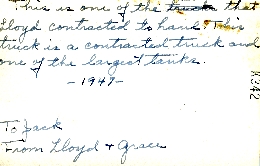 This is one of the trucks that
Lloyd contracted to haul. This
truck is a contracted truck and
one of the largest tanks.
- 1947 -
To Jack
From Lloyd & Grace
K342